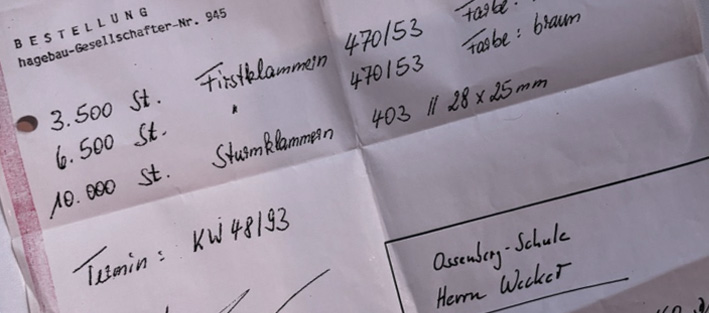 BESTELLUNG
hagebau-Gesellschafter-Nr. 945
3.500 St. Firstklammern 470/53 Farbe:
6.500 St. " 470/53 Farbe: braun
10.000 St. Sturmklammern 403 // 28 x 25 mm
Termin: KW 48/93
Ossenberg-Schule
Herrn Wecker